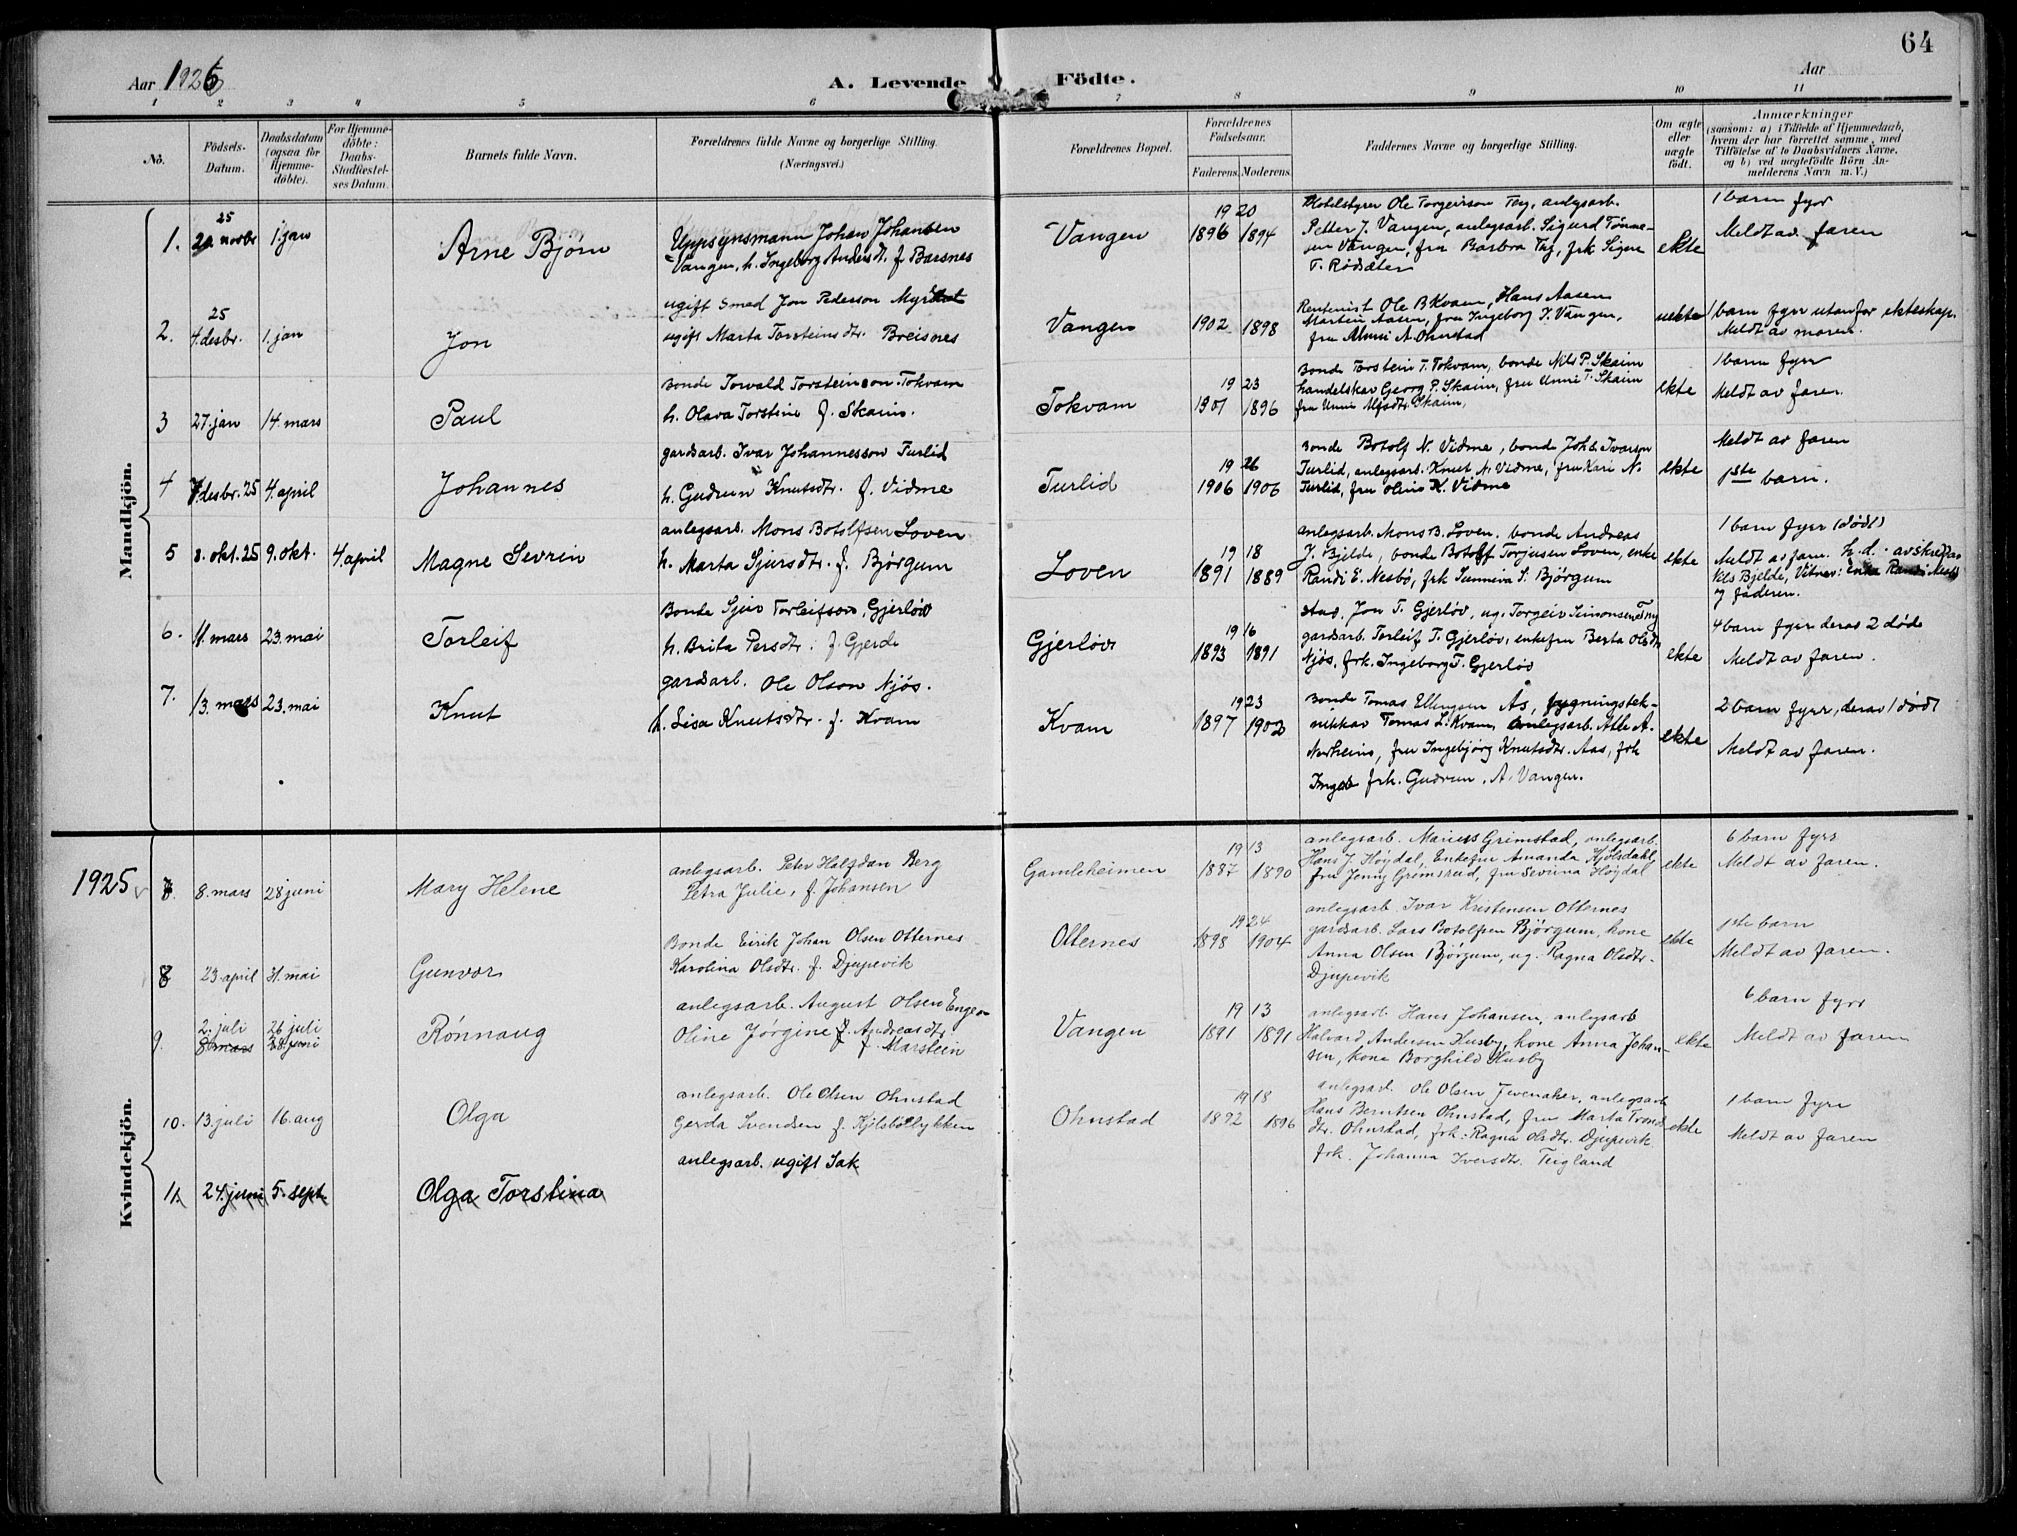 64
Aar 1926 A. Levende Födte. Aar
1 2 3 4 5 6 7 8 9 10 11
No. Födsels-Datum. Daabsdatum (ogsaa for Hjemme-döbte). For Hjemme-döbte: Daabs-Stadfæstel-ses Datum. Barnets fulde Navn. Forældrenes fulde Navne og borgerlige Stilling. (Næringsvei.) Forældrenes Bopæl. Forældrenes Födselsaar. Faderens. Moderens. Faddernes Navne og borgerlige Stilling. Om ægte eller uægte födt. Anmærkninger
(saasom: a) i Tilfælde af Hjemmedaab, hvem der har forrettet samme, med Tilföielse af to Daabsvidners Navne, og b) ved uægtefödte Börn Anmelderens Navn m. V.)
Mandkjön.
1. 25 20 novbr 1. jan Arne Bjørn
Uppsynsmann Johan Johansen
Vangen, h. Ingeborg Andersdt. f. Barsnes
Vangen 19 20 1896 1894
Hotelstyrer Ole Torgeirson Ty, anlegsarb.
Petter J. Vangen, anlegsarb. Sigurd Tønne-
sen Vangen, fru Barbra Ty, frk Signe
T. Rødsæter
ekte
1 barn fyrr
Meldt av faren
2. 25 4. desbr. 1. jan Jon
ugift Smed Jon Pederson
ugift Marta Torsteinsdtr. Breisnes
Vangen 1902 1898
Rentenist Ole B Kvam, Hans Aasen
Martin Aasen, fru Ingeborg J. Vangen,
fru A. Ohnstad
uekte
1 barn fyrr utanfor ekteskap.
Meldt av moren.
3 27. jan 14. mars Paul
Bonde Torvald Torsteinson Tokvam
h. Olava Torstine f. Skaim.
Tokvam 19 23 1901 1896
Bonde Torstein T. Tokvam, bonde Nils P. Skaim
handelskar Georg P. Skaim, fru Unni T. Skaim
fru Unni Alfsdtr. Skaim,
ekte
1 barn fyrr
Meldt av faren.
4 7 desbr. 25 4. april Johannes
gardsarb. Ivar Johannesson Turlid
h. Gudrun Knutsdtr. f. Vidme
Turlid 19 26 1906 1906
Bonde Botolf N. Vidme, bonde Joh.s. Ivarson
Turlid, anlegsarb. Knut N. Vidme, fru Kari N.
Turlid, fru Olina K. Vidme
ekte
Meldt av faren
1ste barn.
5 8. okt. 25 9. okt. 4. april Magne Sevrin
anlegsarb. Mons Botolfsen Loven
h. Marta Sjursdtr. f. Bjørgum
Loven 19 18 1891 1889
anlegsarb. Mons B. Loven, bonde Andreas
J. Bjelde, bonde Botolf Torjusen Loven, enke
Randi E. Nesbø, frk Sunneva S. Bjørgum
ekte
1 barn fyrr (dødt)
Meldt av faren. h. d. av
Nils Bjelde, Vitner: enke Randi
og faderen.
6. 11. mars 23. mai Torleif
Bonde Sjur Torleifson, Gjerløv
h. Brita Persdtr. f. Gjerde
Gjerløv 19 16 1893 1891
stud. Jon T. Gjerløv, ug. Torgeir Simonsen Ty
gardsarb. Torleif T. Gjerløv, enkefru Berta Olsdtr
Njøs, frk. Ingeborg T. Gjerløv
ekte
4 barn fyrr derav 2 døde
Meldt av faren.
7. 13. mars 23. mai Knut
gardsarb. Ole Olson Njøs.
h. Lisa Knutsdtr. f. Kvam
Kvam 19 23 1897 1902
Bonde Tomas Ellingsen Ås, bygningstek-
nikkar Tomas L. Kvam, anlegsarb. Atle A.
Nerheim, fru Ingebjørg Knutsdtr. Aas, frk
frk. Gudrun A. Vangen.
ekte
2 barn fyrr, derav 1 dødt
Meldt av faren.
1925
Kvindekjön.
7. 8. mars 28 juni Mary Helene
anlegsarb. Peter Halfdan Berg
Petra Julie, f. Johansen
Gamleheimen 19 13 1887 1890
anlegsarb. Marius Grimstad, anlegsarb.
Hans J. Høydal, Enkefru Amanda Kjølsdahl,
fru Jenny Grimstad, fru Sevrina Høydal
ekte
6 barn fyrr
Meldt av faren.
8 23. april 31. mai Gunvor
Bonde Eirik Johan Olsen Otternes
Karolina Olsdtr. f. Djupevik
Otternes 19 24 1898 1904
anlegsarb. Ivar Kristensen Otternes
gardsarb. Lars Botolfsen Bjørgum, kone
Anna Olsen Bjørgum, ug. Ragna Olsdtr.
Djupevik
ekte
1ste barn
Meldt av faren.
9. 2. juli 26 juli Rønnaug
8 mars 28. juni
anlegsarb. August Olsen Engen
Oline Jørgine Andreasdtr.
f. Marstein
Vangen 19 13 1891 1891
anlegsarb. Hans Johansen, anlegsarb
Halvard Andersen Husby, kone Anna Johan-
sen, kone Borghild Husby
ekte
6 barn fyrr
Meldt av faren
10. 13. juli 16. aug Olga
anlegsarb. Ole Olsen Ohnstad
Gerda Svendsen f. Kjilsbøllykken
Ohnstad 19 18 1892 1896
anlegsarb. Ole Olsen Jevenaker, anlegsarb
Hans Berntsen Ohnstad, fru Marta Trond
dtr. Ohnstad, frk. Ragna Olsdtr. Djupevik
frk. Johanna Iversdtr. Tugland
ekte
1 barn fyrr
Meldt av faren
11. 24. juni 5. sept Olga Torstina
anlegsarb. ugift Sak